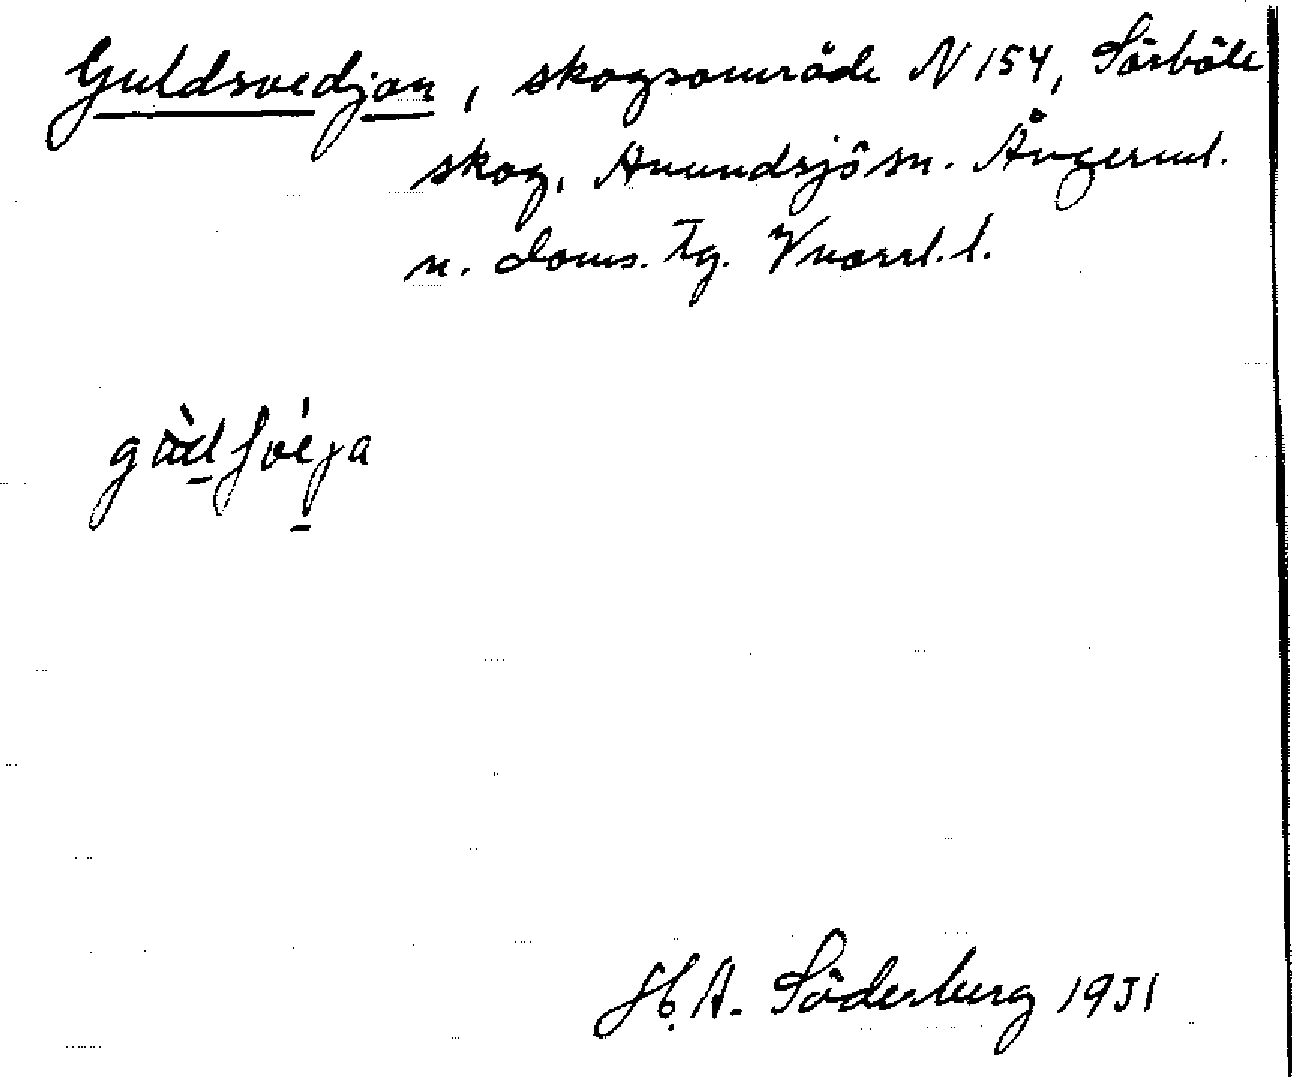 Guldsvedjan, skogsområde N 154, Sörböle
skog, Anundsjö sn. Ångerml.
n. doms. tg. Vnorrl. l.
H. A. Söderberg 1931